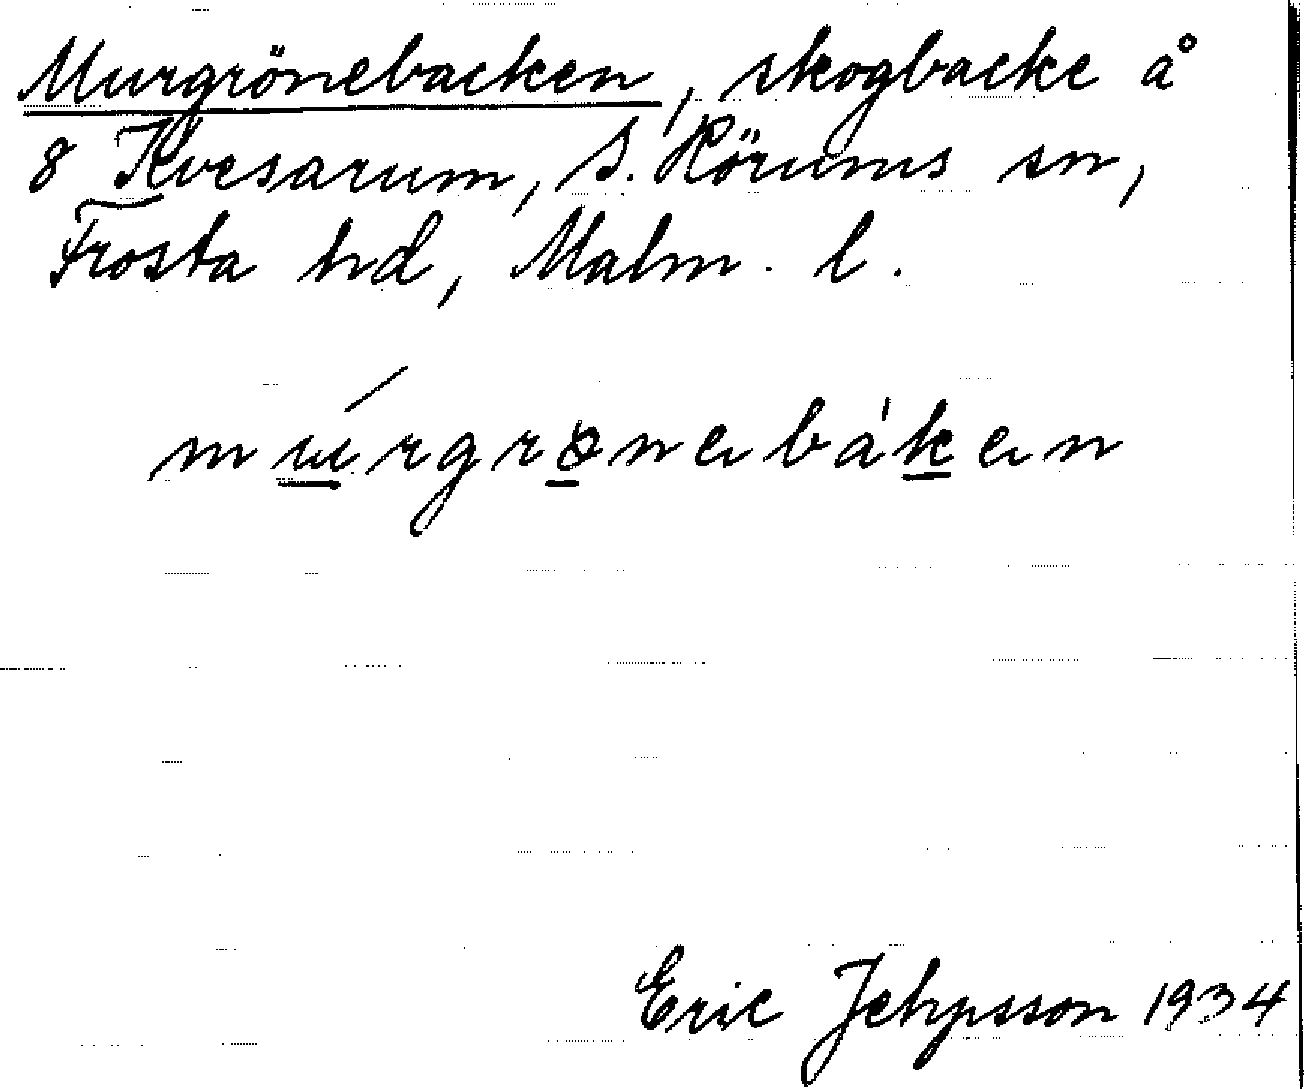 Murgrönebacken, skogbacke å
8 Kvesarum, S. Rörums sn,
Frosta hd, Malm. l.
múrgrønebáken
Eric Jehpsson 1934